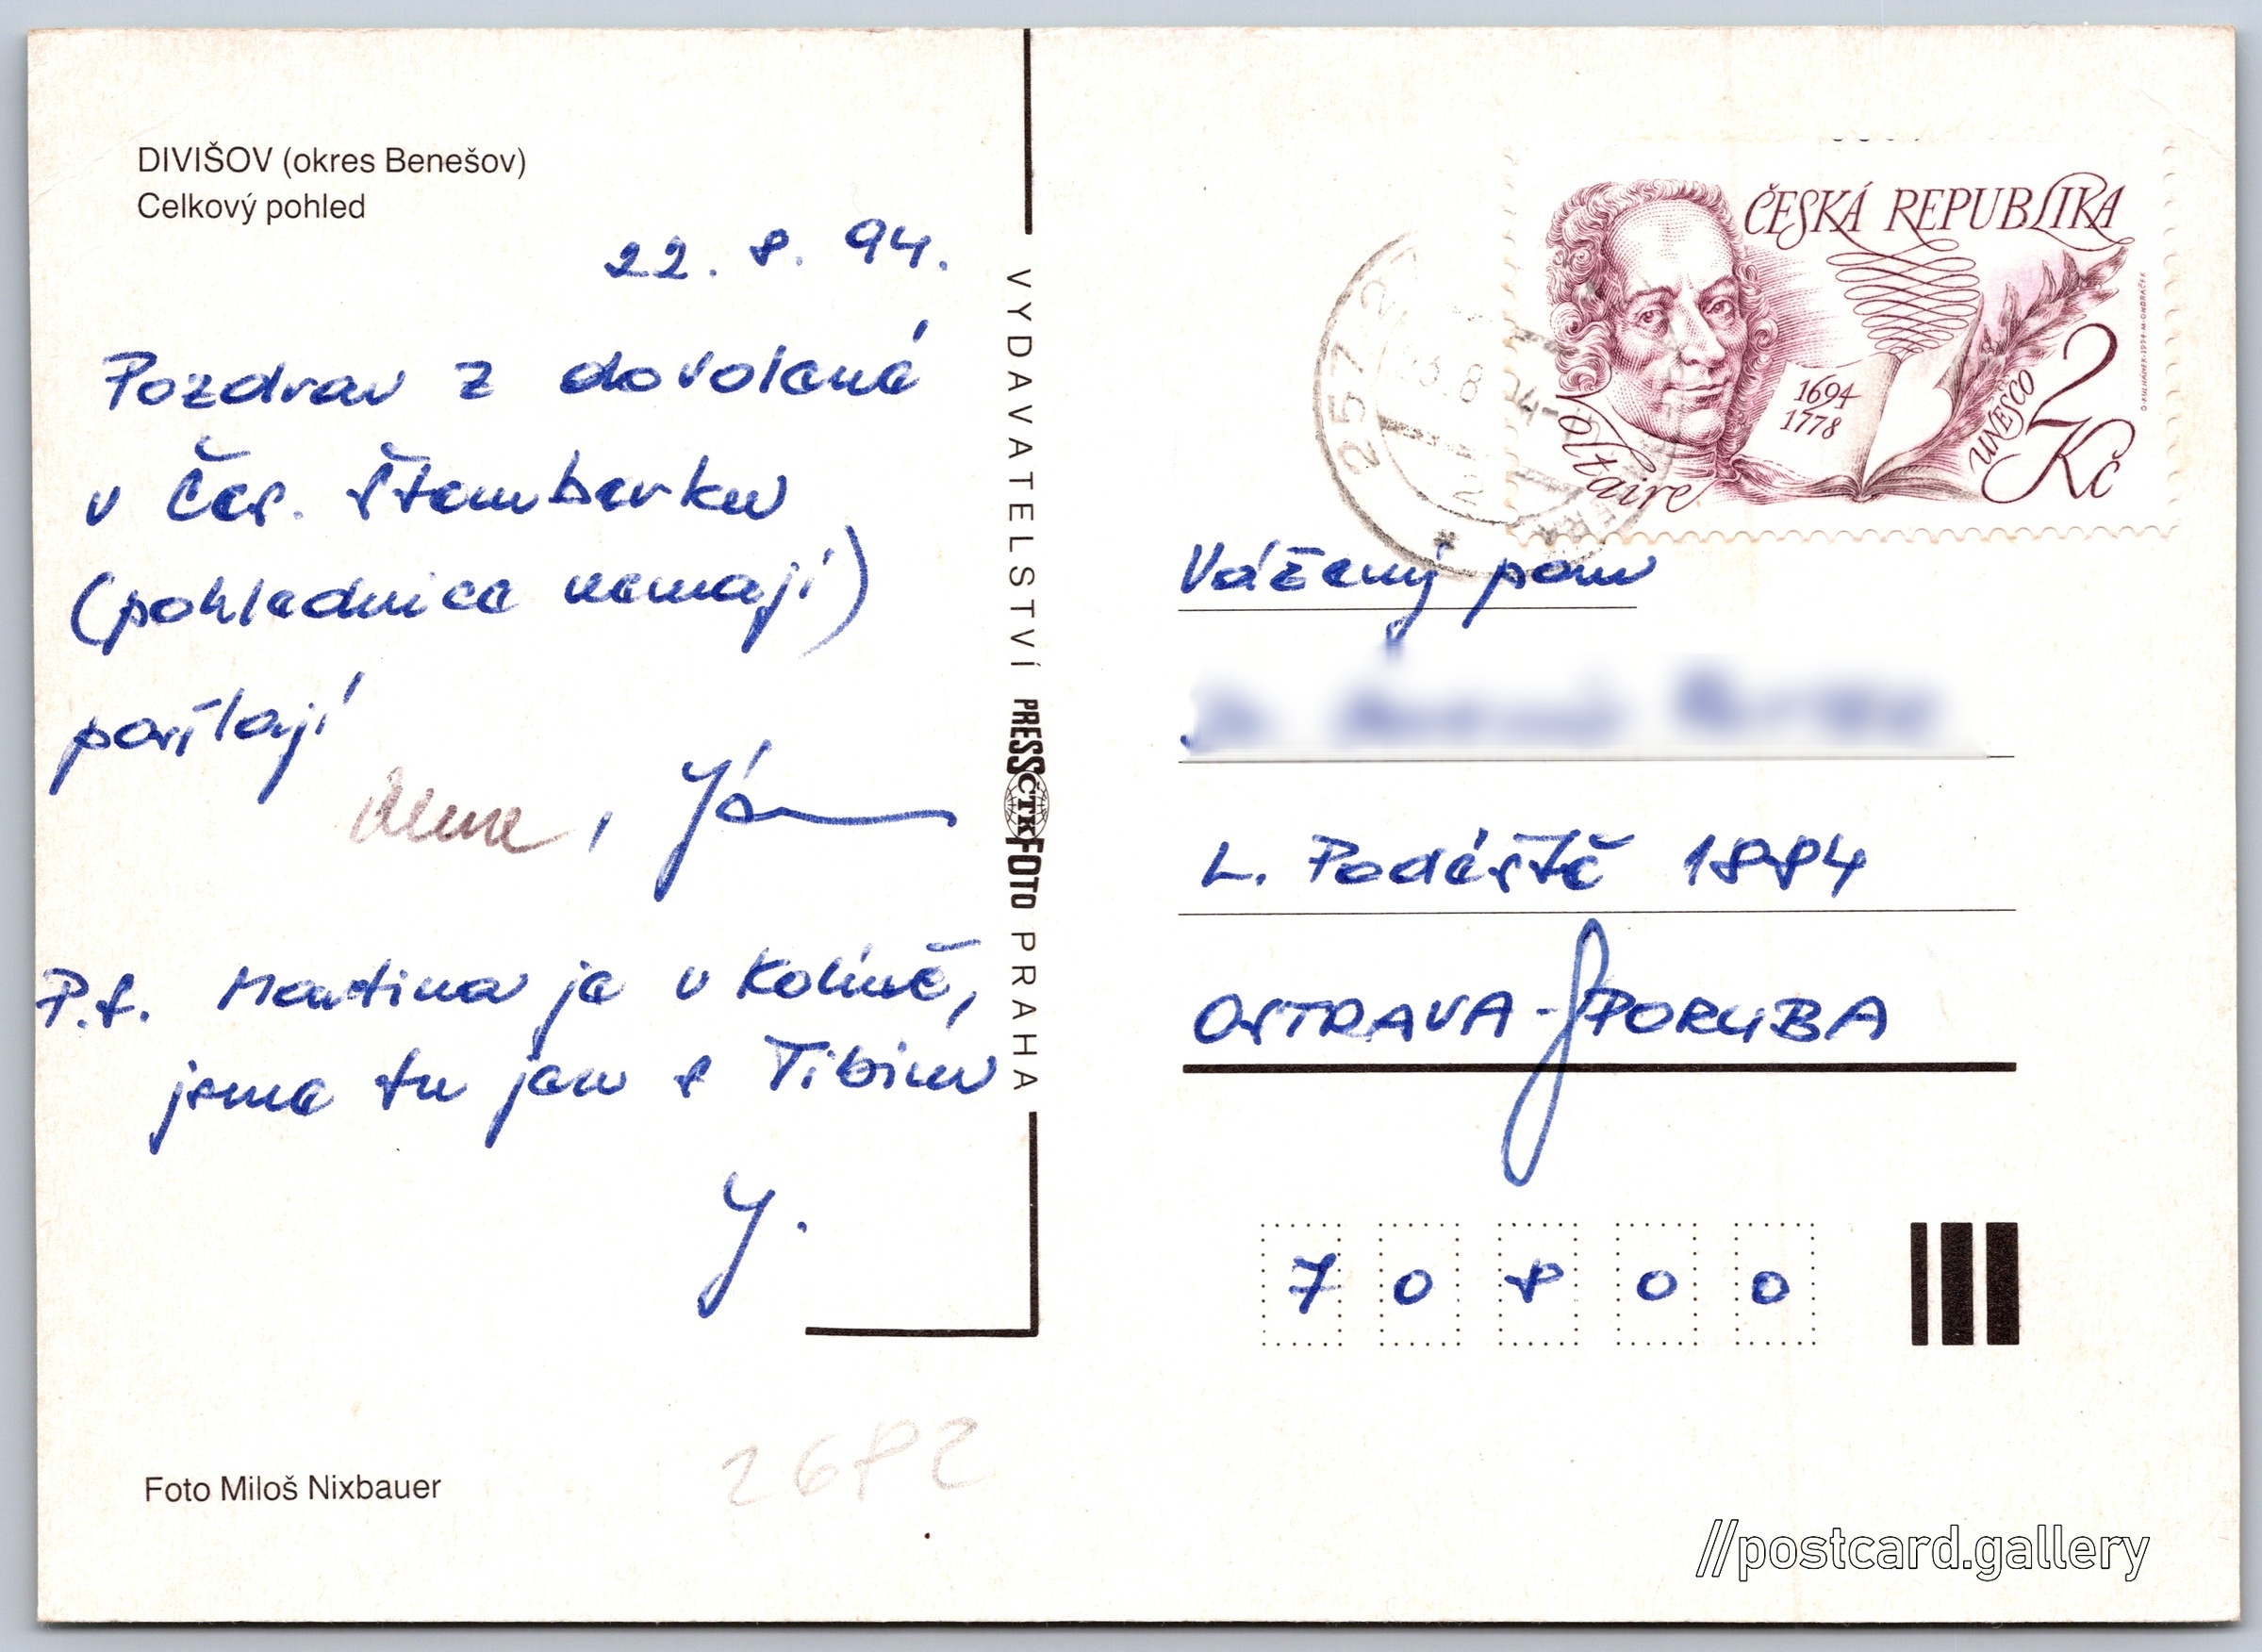 DIVIŠOV (okres Benešov)
Celkový pohled
22. 8. 94.
Pozdrav z dovolené
v Čes. Štemberku
(pohlednice nemají)
posílají
Alena, Já
P.S. Martina je v Kolíně,
jsme tu jen s Tibim
J.
Foto Miloš Nixbauer
2682
VYDAVATELSTVÍ PRESSČTKFOTO PRAHA
ČESKÁ REPUBLIKA
1694
1778
Voltaire
UNESCO
2 Kč
257 2
23.8.94
Vážený pan
L. Podéště 1884
OSTRAVA-PORUBA
7 0 8 0 0
//postcard.gallery